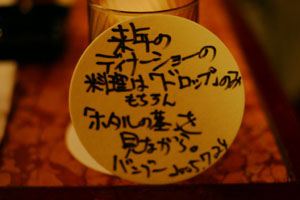 来年の
ディナーショーの
料理は「ドロップ」のみ
もちろん
「ホタルの墓」を
見ながら。
バンブー 2005 7 24